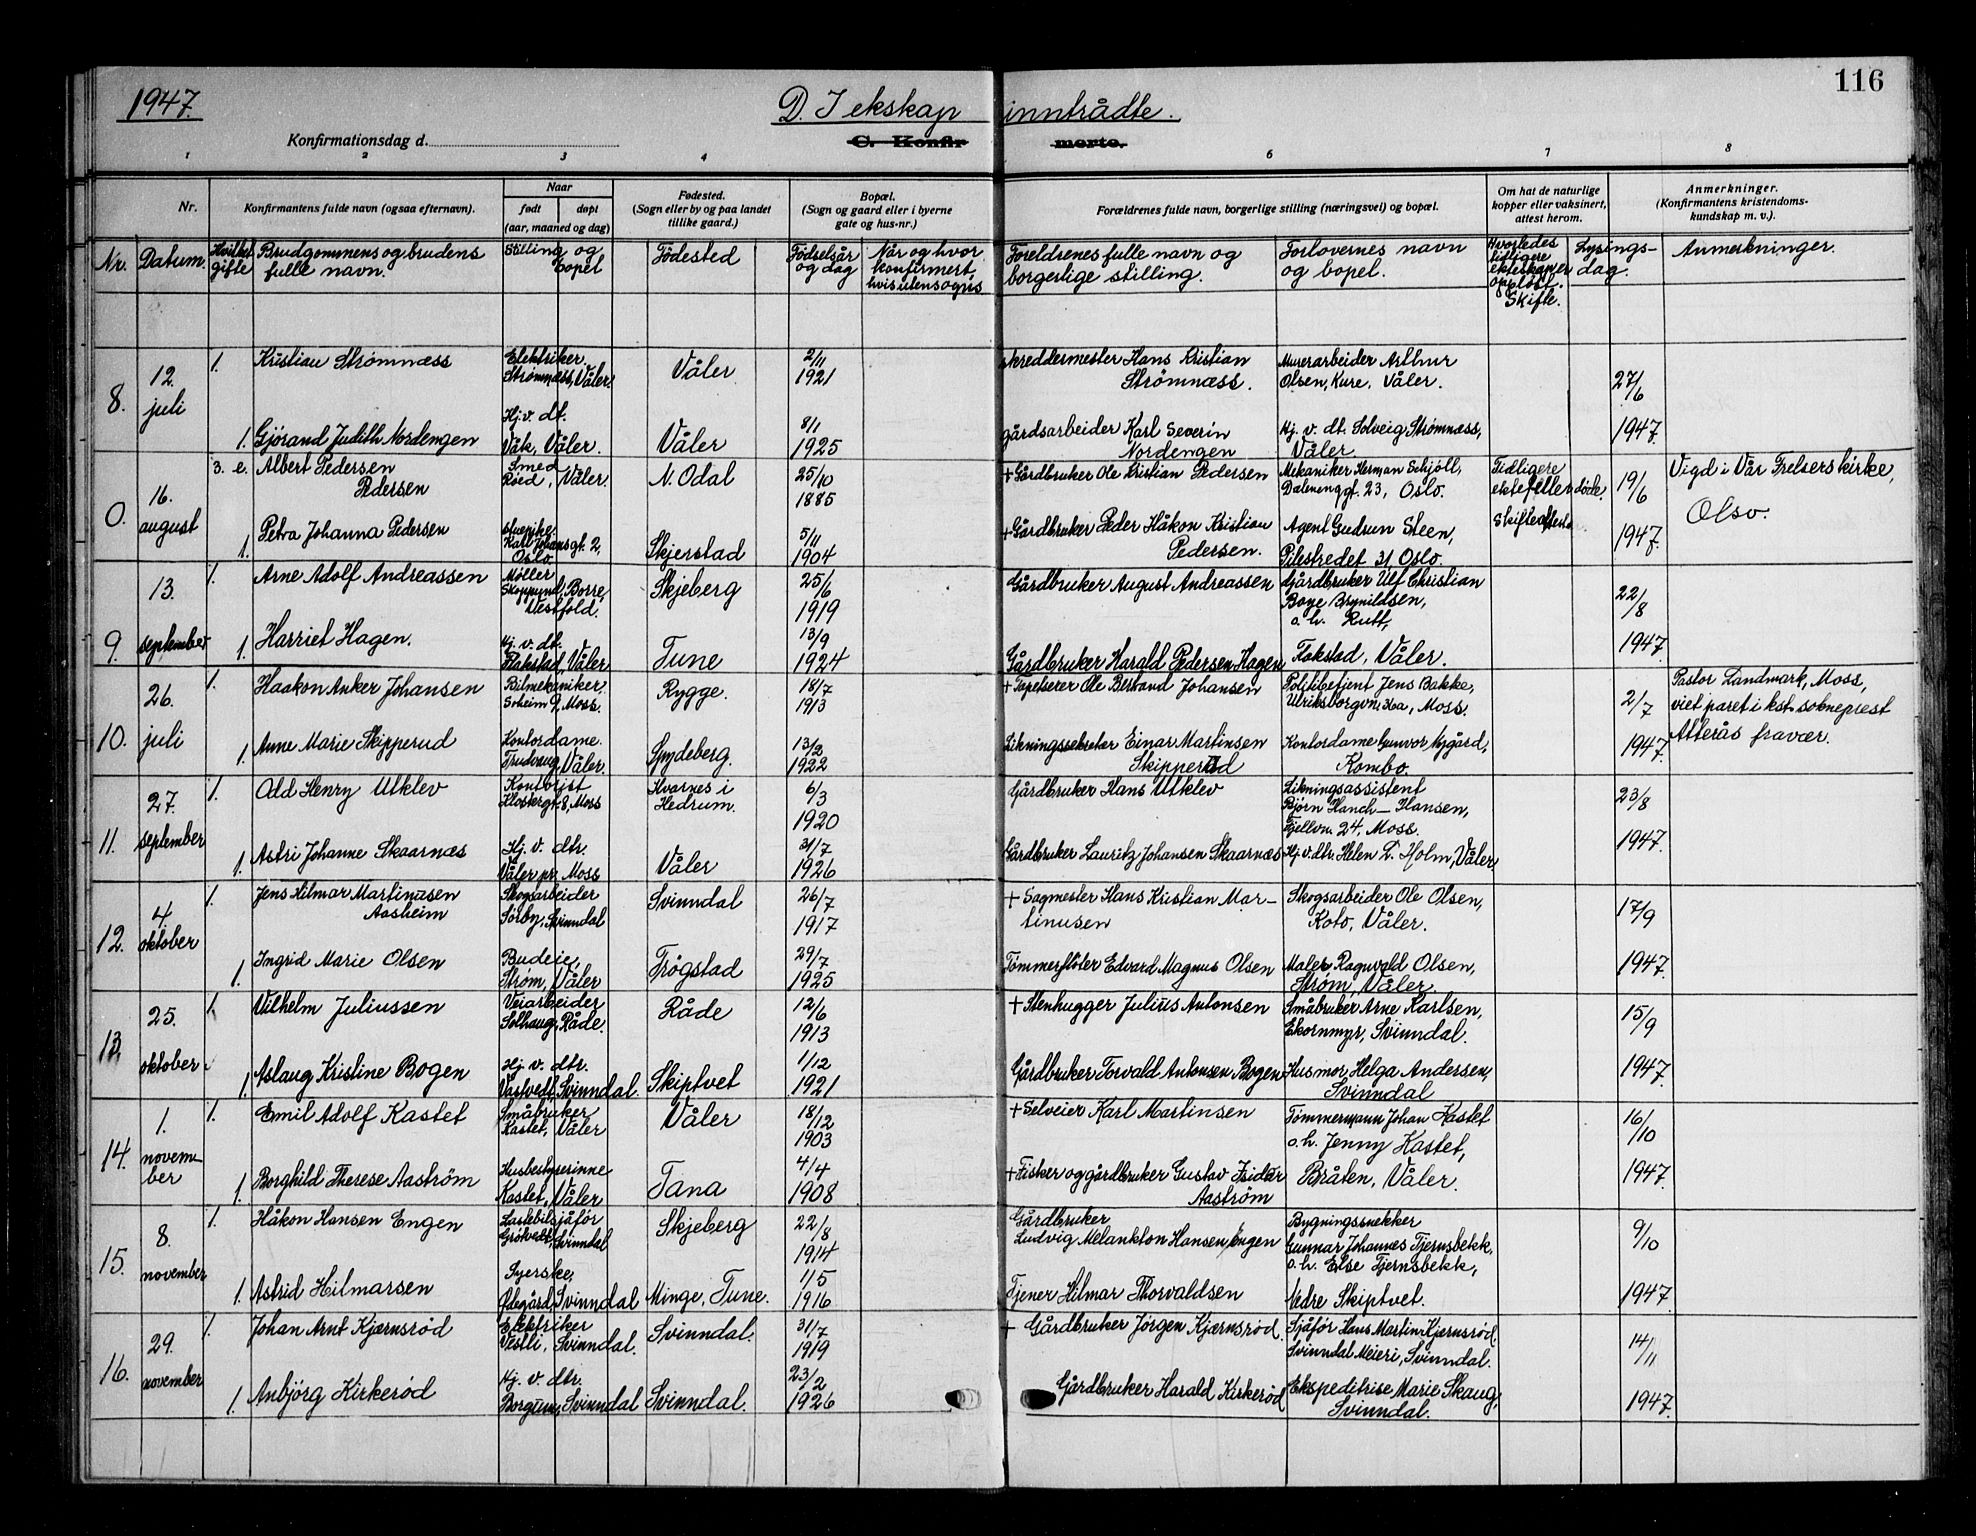 116
1947.
D. I ekskap inntrådte.
Konfirmationsdag d.
C. Konfir merte.
1 2 3 4 6 7 8
Nr.
Konfirmantens fulde navn (ogsaa efternavn).
Naar
født døpt
(aar, maaned og dag)
Fødested.
(Sogn eller by og paa landet
tillike gaard.)
Bopæl.
(Sogn og gaard eller i byerne
gate og hus-nr.)
Forældrenes fulde navn, borgerlige stilling (næringsvei) og bopæl.
Om hat de naturlige
kopper eller vaksinert,
attest herom.
Anmerkninger.
(Konfirmantens kristendoms-
kundskap m. v.).
Nr. Datum. Hvilket
gifte
Brudgommens og brudens
fulle navn.
Stilling og
bopel
Fødested
Fødselsår
og dag
Når og hvor
konfirmert,
hvis utensogns
Foreldrenes fulle navn og
borgerlige stilling.
Forlovernes navn
og bopel.
Hvorledes
tidligere
ekteskap er
oppløst.
Skifte.
Lysings-
dag.
Anmerkninger.
8. 12. juli
1. Kristian Strømnæss
Elektriker
Strømnæss, Våler
Våler
2/11
1921
skreddermester Hans Kristian
Strømnæss.
Murerarbeider Arthur
Olsen, Kure, Våler.
27/6
1947.
1. Gjørand Judith Nordengen
Hj. v. dt.
Våk, Våler.
Våler
8/1
1925
gårdsarbeider Karl Severin
Nordengen
Hj. v. dt. Solveig Strømnæss,
Våler.
0. 16. august
3. e. Albert Pedersen
Pedersen
Smed
Røed, Våler.
N. Odal
25/10
1885
+ Gårdbruker Ole Kristian Pedersen
Mekaniker Herman Schjöll,
Dælenenggt. 23, Oslo.
Tidligere
ektefeller døde.
Skifteattest
19/6
1947.
Vigd i Vår Frelsers kirke,
Olso.
1. Petra Johanna Pedersen
stuepike
Karl Johansgt. 2,
Oslo.
Skjerstad
5/11
1904
+ Gårdbruker Peder Håkon Kristian
Pedersen.
Agent Gudrun Steen,
Pilestredet 31 Oslo.
9. 13. september
1. Arne Adolf Andreassen
Møller
Skoppund, Borre,
Vestfold.
Skjeberg
25/6
1919
Gårdbruker August Andreassen
Gjårdbruker Ulf Christian
Boye Brynildsen,
o. h. Rutt,
22/8
1947.
1. Harriet Hagen.
Hj. v. dt.
Flakstad, Våler
Tune
13/9
1924
Gårdbruker Harald Pedersen Hagen
Flakstad, Våler.
10. 26. juli
1. Haakon Anker Johansen
Bilmekaniker
Soheim 9, Moss.
Rygge.
18/7
1913
+ Tapetserer Ole Bertrand Johansen
Politibetjent Jens Bakke,
Ulriksborgvn. 36a, Moss.
2/7
1947.
Pastor Landmark, Moss,
viet paret i kst. sokneprest
Atterås fravær.
1. Anne Marie Skipperud
Kontordame.
Trudvang, Våler.
Spydeberg.
13/2
1922
Likningssekretær Einar Martinsen
Skipperud
Kontordame Gunvor Nygård,
Kambo.
11. 27. september
1. Odd Henry Utklev
Kontorist
Klostergt. 8, Moss
Kvarnes i
Hedrum.
6/3
1920
Gårdbruker Hans Utklev
Likningsassistent
Bjørn Hanch-Hansen,
Fjellvn. 24, Moss.
23/8
1947.
1. Astri Johanne Skaarnæs
Hj. v. dtr.
Våler pr. Moss
Våler
31/7
1926
Gårdbruker Lauritz Johansen Skaarnæs
Hj. v. dtr. Helen D. Holm, Våler
12. 4. oktober
1. Jens Hilmar Martinusen
Aasheim
Skogsarbeider
Sørby, Svinndal
Svinndal
26/7
1917
+ Sagmester Hans Kristian Mar-
tinusen
Skogsarbeider Ole Olsen,
Koto, Våler.
17/9
1947.
1. Ingrid Marie Olsen
Budeie,
Strøm, Våler
Trøgstad
29/7
1925
Tømmerfløter Edvard Magnus Olsen
Maler Ragnvald Olsen,
Strøm, Våler
13. 25. oktober
1. Vilhelm Juliussen
Veiarbeider
Solhaug, Råde.
Råde
12/6
1913
+ Stenhugger Julius Antonsen
Småbruker Arne Karlsen,
Ekornmyr, Svinndal.
15/9
1947.
1. Aslaug Kristine Bogen
Hj. v. dtr.
Vastvedt, Svinndal.
Skiptvet
1/12
1921
Gårdbruker Torvald Antonsen Bogen
Husmor Helga Andersen,
Svinndal
14. 1. novem-
ber
1. Emil Adolf Kastet
Småbruker
Kastet, Våler
Våler
18/12
1903
+ Selveier Karl Martinsen
Tømmermann Johan Kastet
o. h. Jenny Kastet,
Bråten, Våler.
16/10
1947.
1. Borghild Therese Aaström
Husbestyrerinne
Kastet, Våler
Tana
4/4
1908
+ Fisker og gårdbruker Gustav Isidor
Aaström
15. 8. november
1. Håkon Hansen Engen
Lastebilsjåfør
Grøtvedt, Svinndal
Skjeberg
22/8
1914
Gårdbruker
Ludvig Melankton Hansen Engen
Bygningssnekker
Gunnar Johannes Tjernsbekk,
o. h. Else Tjernsbekk,
9/10
1947.
1. Astrid Hilmarsen
Syerske,
Ødegård, Svinndal
Minge, Tune.
1/5
1916
Tjener Hilmar Thorvaldsen
Nedre Skiptvet.
16. 29. november
1. Johan Arnt Kjærnsrød
Elektriker
Vestli, Svinndal.
Svinndal.
31/7
1919
+ Gårdbruker Jørgen Kjærnsrød.
Sjåfør Hans Martin Kjærnsrød,
Svinndal Meieri, Svinndal.
14/11
1947.
1. Anbjörg Kirkerød
Hj. v. dtr.
Borgum, Svinndal
Svinndal.
23/2
1926
Gårdbruker Harald Kirkerød
Ekspeditrise Marie Skaug,
Svinndal.